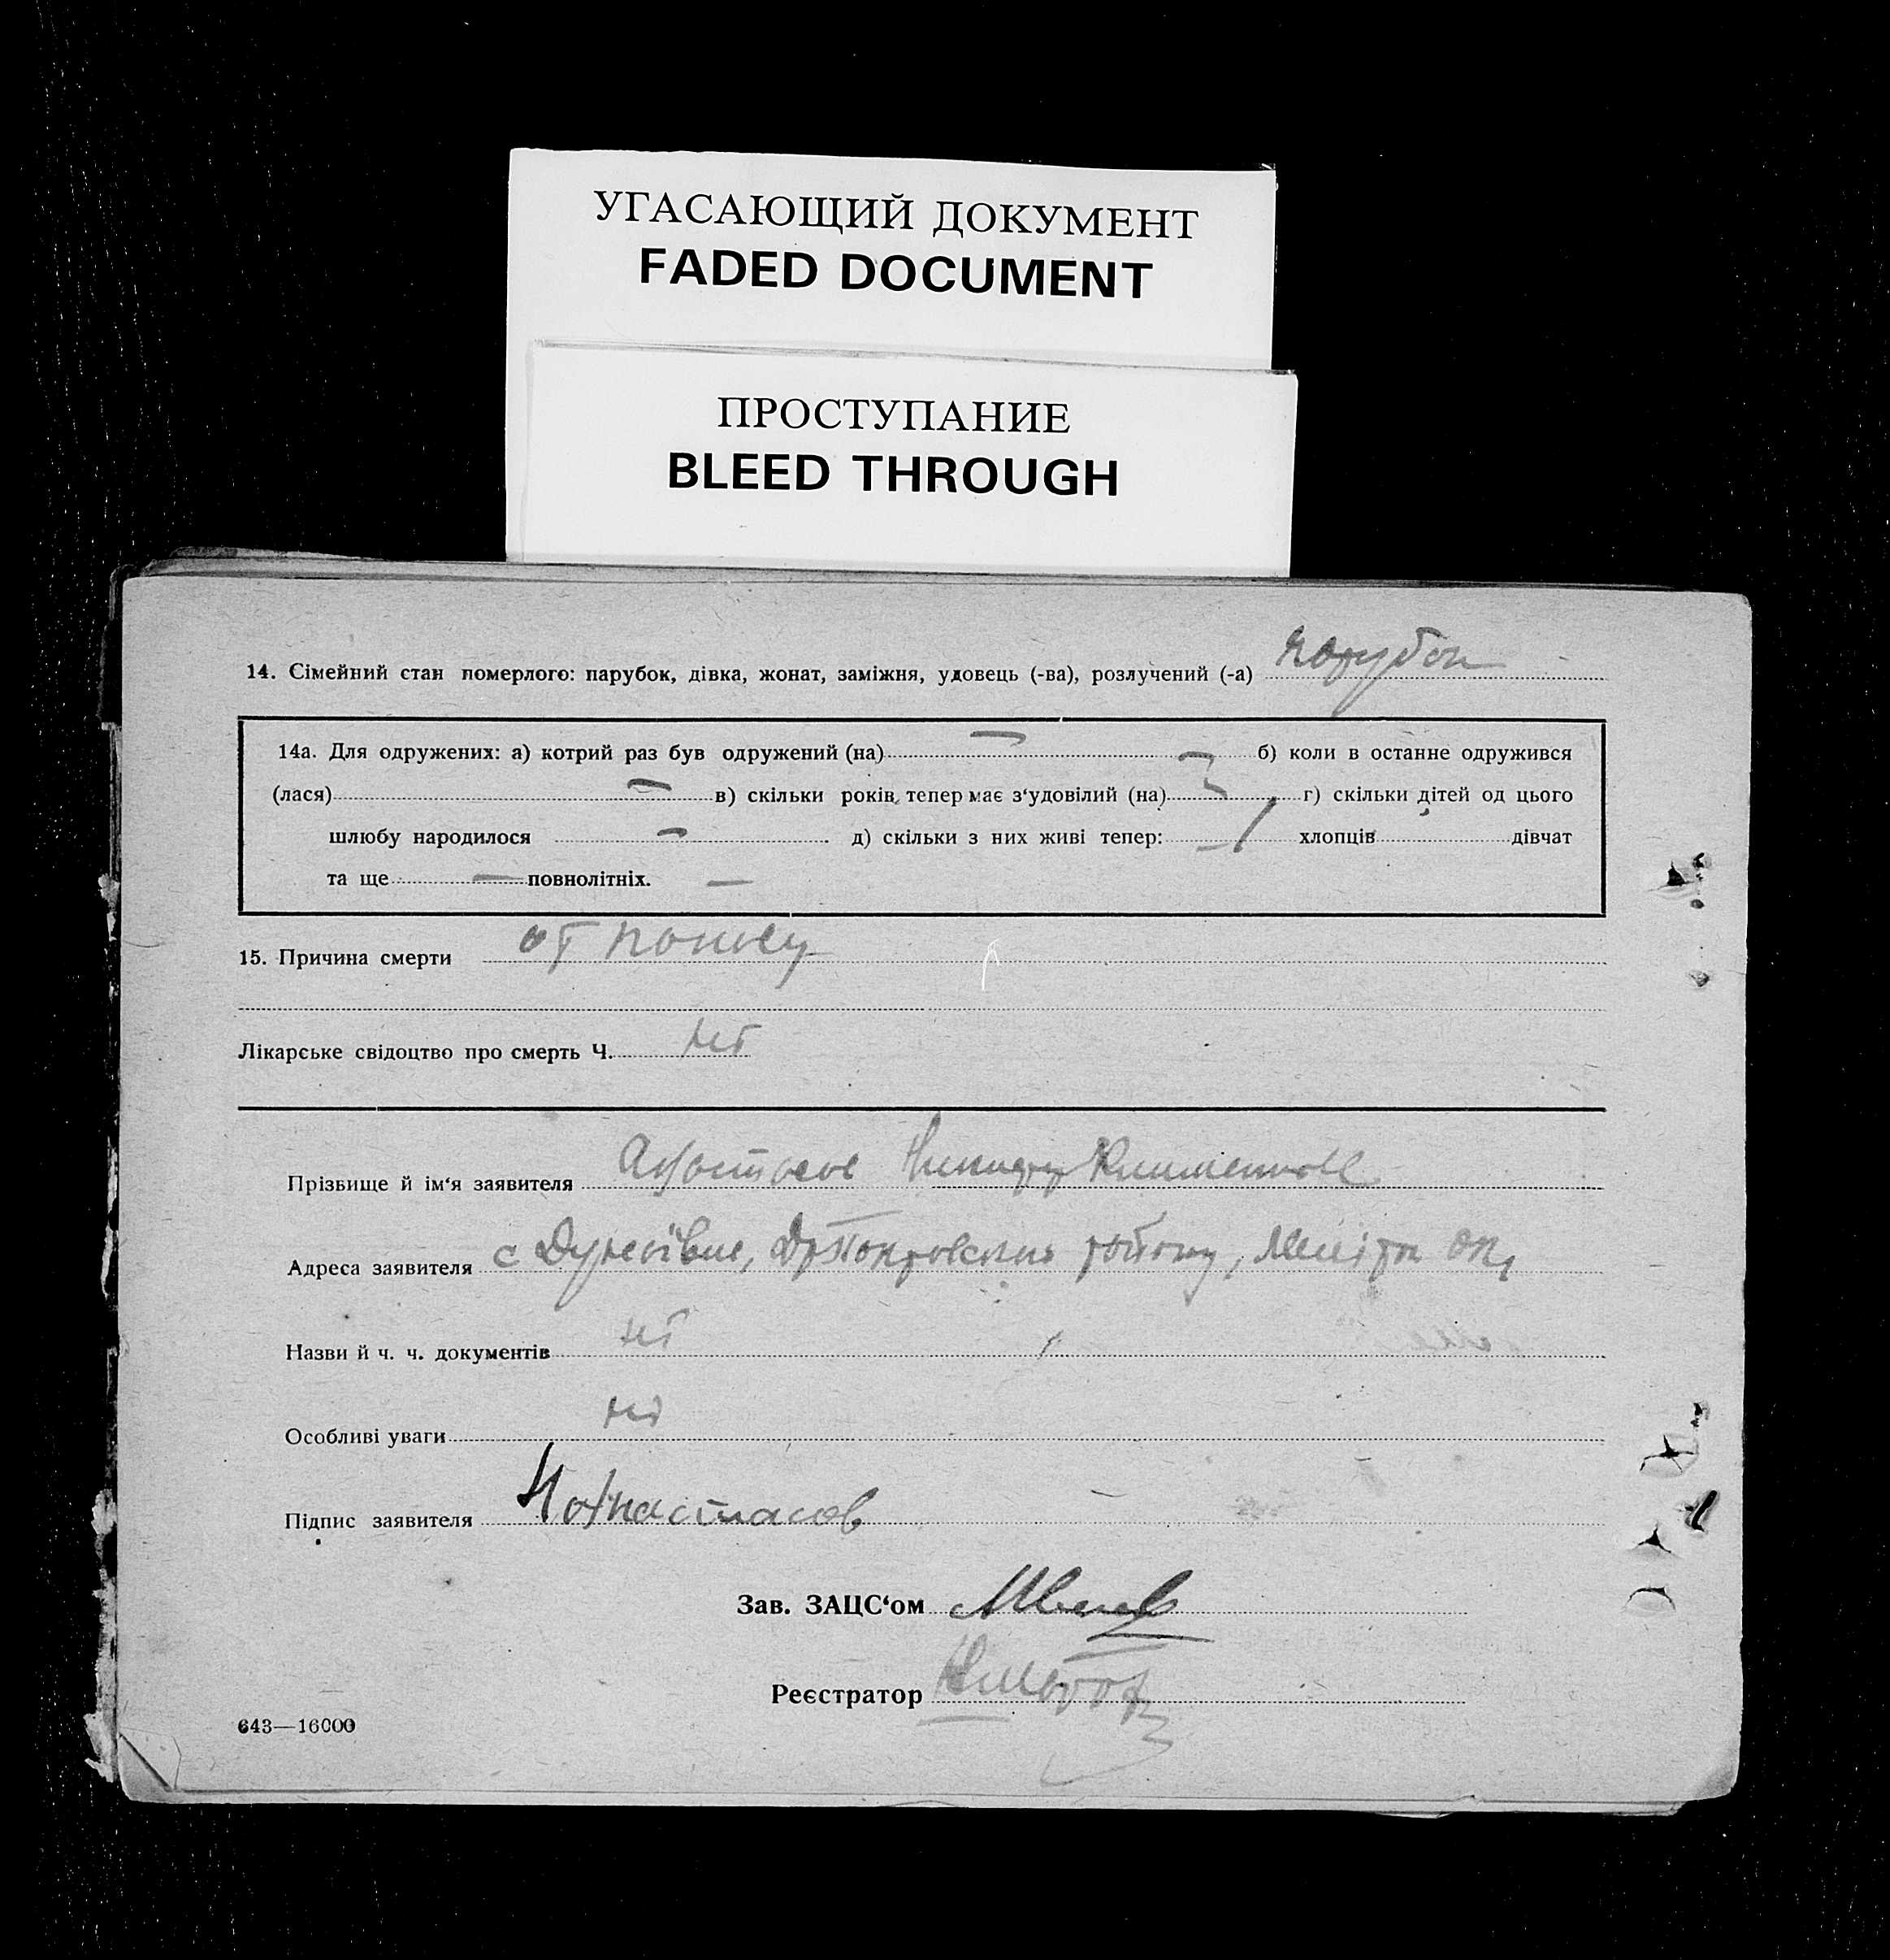 УГАСАЮЩИЙ ДОКУМЕНТ
FADED DOCUMENT
ПРОСТУПАНИЕ
BLEED THROUGH
14. Сімейний стан померлого: парубок, дівка, жонат, заміжня, удовець (-ва), розлучений (-а) парубок
14а. Для одружених: а) котрий раз був одружений (на) — б) коли в останне одружився
(лася) — в) скільки років тепер має з'удовілий (на) г) скільки дітей од цього
шлюбу народилося — д) скільки з них живі тепер: хлопців дівчат
та ще — повнолітніх. —
15. Причина смерти от поносу
Лікарське свідоцтво про смерть Ч. нет
Прізвище й ім'я заявителя
Адреса заявителя с
Назви й ч. ч. документів нет
Особливі уваги
Підпис заявителя Анастасов
Зав. ЗАЦС'ом
Реєстратор
643—16000